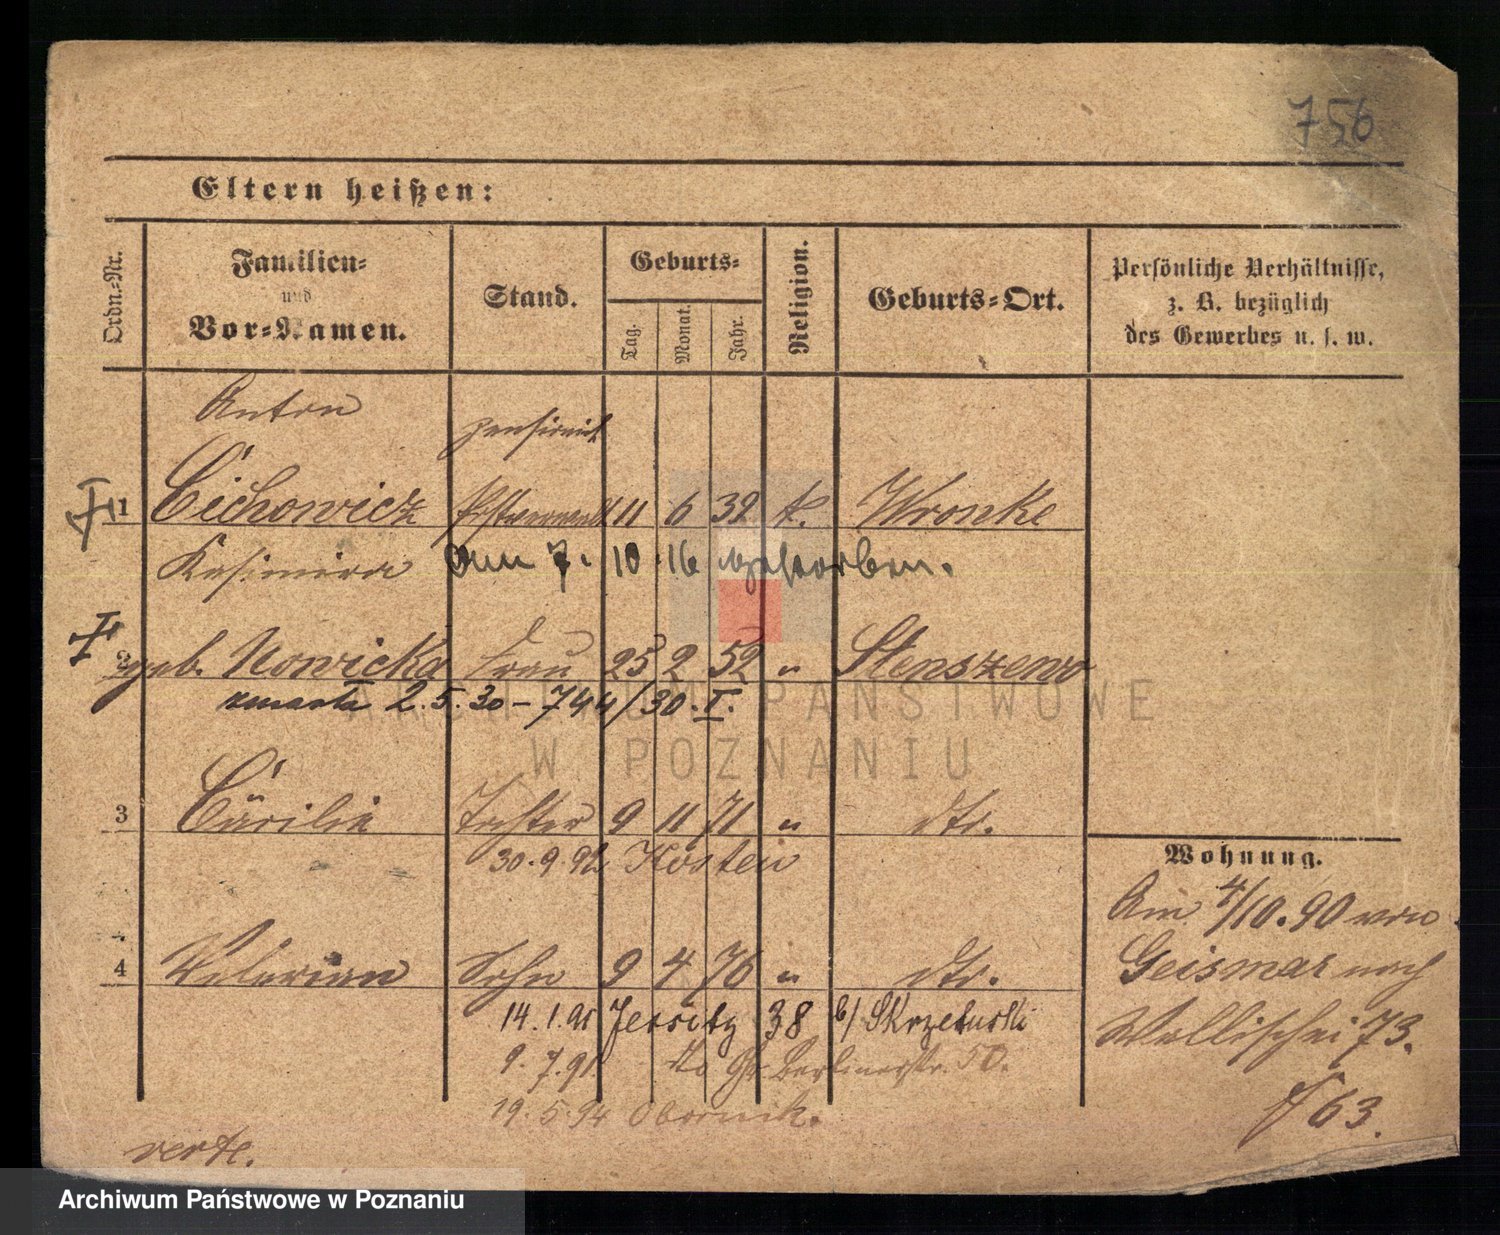 756
Eltern heißen:
Ordn.-Nr.
Familien-
und
Vor-Namen.
Stand.
Geburts-
Tag.
Monat.
Jahr.
Religion.
Geburts-Ort.
Persönliche Verhältnisse,
z. B. bezüglich
des Gewerbes u. s. w.
Anton
1 Cichowicz 11 6 32 k. Wronke
Kasimira am 7. 10. 16 gestorben.
2 geb. Nowicka Frau 25 2 52 " Stenszewo
zmarła 2.5.30 – 744/30. I.
3 Cäcilie Tochter 9 11 71 " dto.
30.9.92 Kosten
4 Valerian Sohn 9 4 76 " dto.
14.1.91 Jersitz 38 b/ Skrzetuski
9.7.91. dto Gr. Berlinerstr. 50.
19.5.94 Obornik.
verte.
Wohnung.
Am 4/10.90 von
Geismar nach
Wallischei 73.
63.
ARCHIWUM PAŃSTWOWE
W POZNANIU
Archiwum Państwowe w Poznaniu